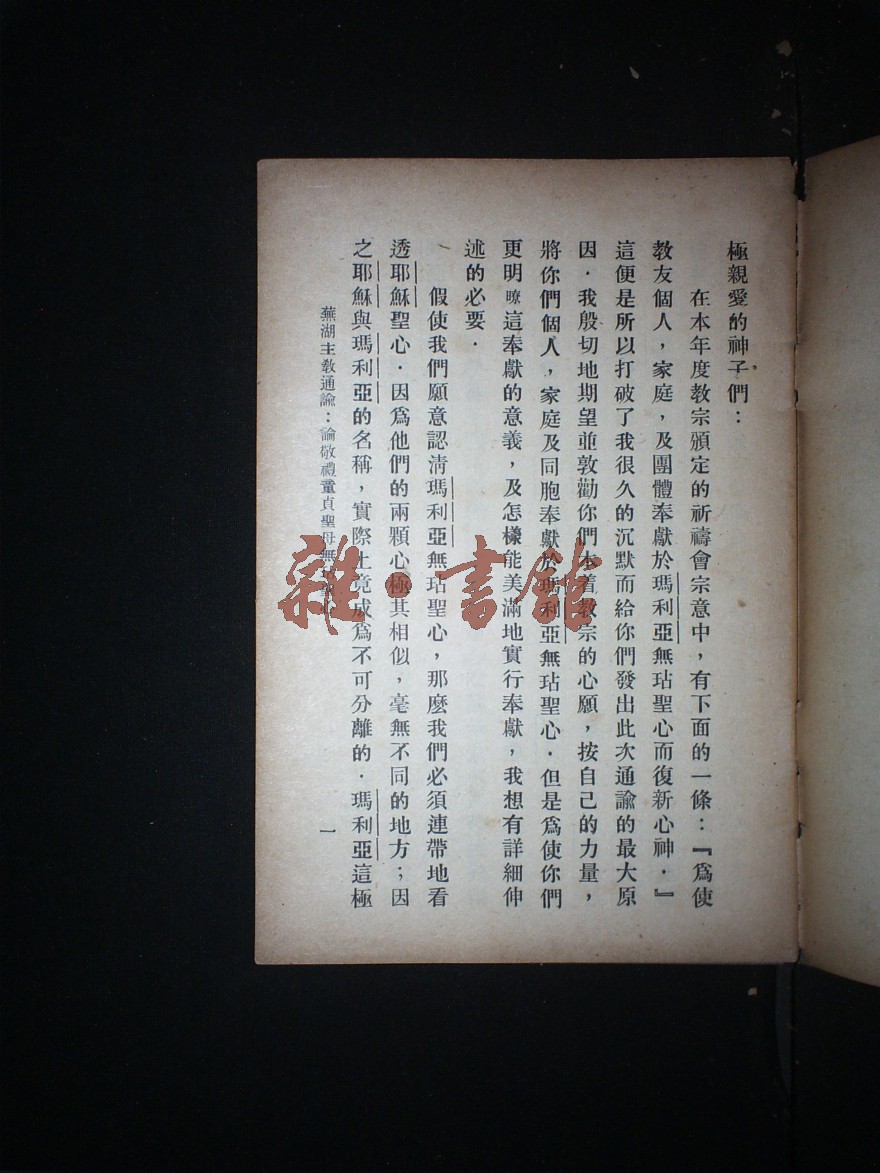 極親愛的神子們：
在本年度教宗頒定的祈禱會宗意中，有下面的一條：『爲使
教友個人，家庭，及團體奉獻於瑪利亞無玷聖心而復新心神．』
這便是所以打破了我很久的沉默而給你們發出此次通諭的最大原
因．我殷切地期望並敦勸你們本着教宗的心願，按自己的力量，
將你們個人，家庭及同胞奉獻於瑪利亞無玷聖心．但是爲使你們
更明瞭這奉獻的意義，及怎樣能美滿地實行奉獻，我想有詳細伸
述的必要．
假使我們願意認淸瑪利亞無玷聖心，那麽我們必須連帶地看
透耶穌聖心．因爲他們的兩顆心極其相似，毫無不同的地方；因
之耶穌與瑪利亞的名稱，實際上竟成爲不可分離的．瑪利亞這極
蕪湖主教通諭：論敬禮童貞聖母無
一
雜·書館